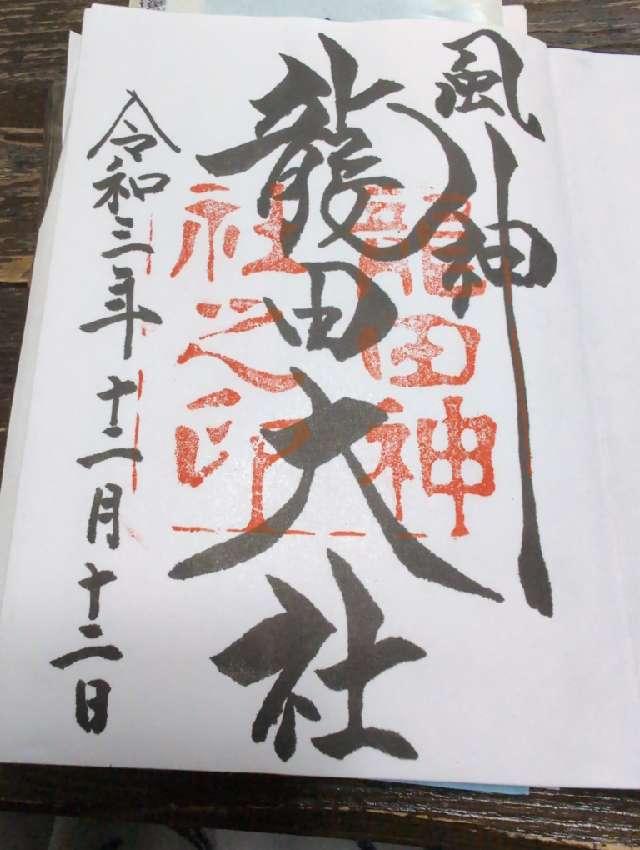 風神
龍田大社
龍田神
社之印
令和三年十二月十二日